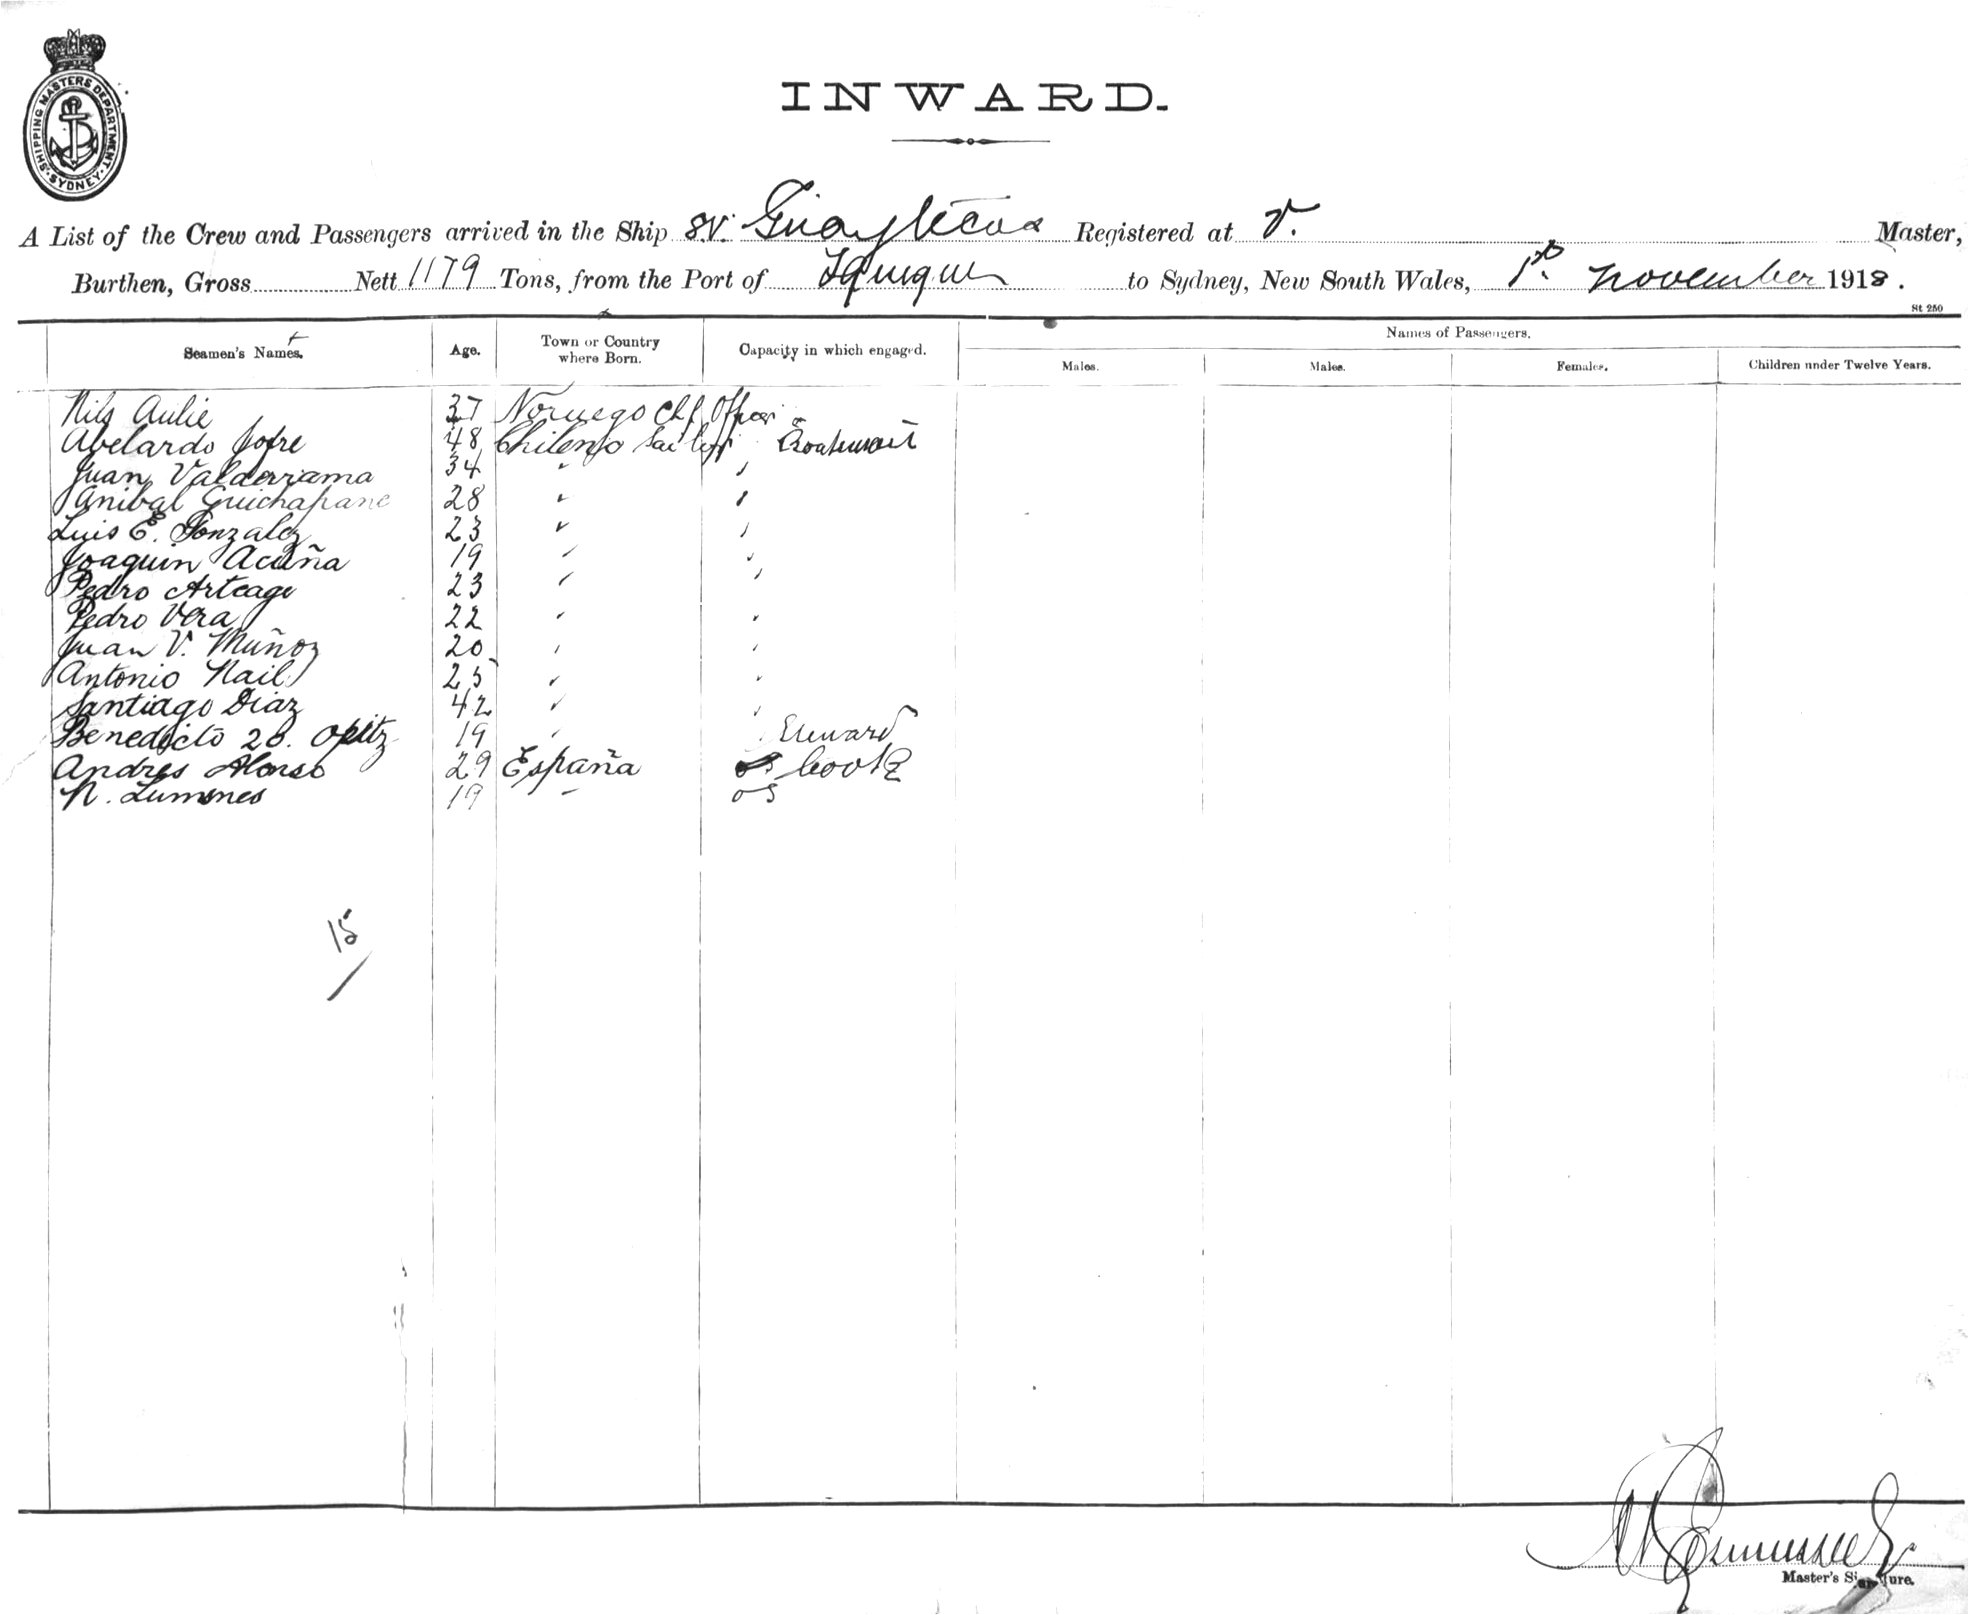 SHIPPING MASTERS DEPARTMENT. SYDNEY.
INWARD.
A List of the Crew and Passengers arrived in the Ship S.V. Guaytecas Registered at V. Master,
Burthen, Gross Nett 1179 Tons, from the Port of Iquique to Sydney, New South Wales, 1st November 1918.
St 250
Seamen's Names. Age. Town or Country where Born. Capacity in which engaged. Names of Passengers.
Males. Males. Females. Children under Twelve Years.
Nils Aulie 37 Noruego Chf Officer
Abelardo Jofre 48 Chileno Boatswain
Juan Valderrama 34 " "
Anibal Guichapane 28 " "
Luis E. Gonzalez 23 " "
Joaquin Acuña 19 " "
Pedro Arteage 23 " "
Pedro Vera 22 " "
Juan V. Muñoz 20 " "
Antonio Nail 25 " "
Santiago Diaz 42 " "
Benedicto 2o. Opitz 19 " Steward
Andres Alonso 29 España Cook
N. 19 " OS
15
Master's Signature.